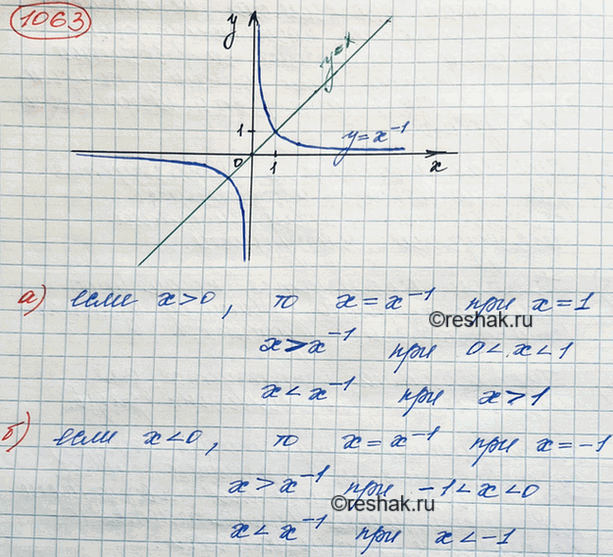 1063
y
y=x
1
y=x⁻¹
0
1
x
а) если x>0, то x=x⁻¹ при x=1
©reshak.ru
x>x⁻¹ при 0<x<1
x<x⁻¹ при x>1
б) если x<0, то x=x⁻¹ при x=-1
x>x⁻¹ при -1<x<0
©reshak.ru
x<x⁻¹ при x<-1